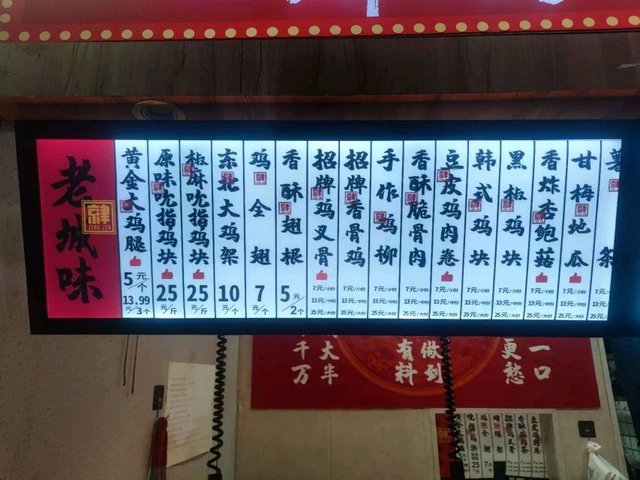 老城味
肆
JING JIN
黄金大鸡腿
5元/个
13.99元/3个
原味吮指鸡块
25元/斤
椒麻吮指鸡块
25元/斤
东北大鸡架
10元/个
鸡全翅
7元/个
香酥翅根
5元/2个
招牌鸡叉骨
7元/小份
13元/中份
25元/大份
招牌香骨鸡
7元/小份
13元/中份
25元/大份
手作鸡柳
7元/小份
13元/中份
25元/大份
香酥脆骨肉
7元/小份
13元/中份
25元/大份
豆皮鸡肉卷
7元/小份
13元/中份
25元/大份
韩式鸡块
7元/小份
13元/中份
25元/大份
黑椒鸡块
7元/小份
13元/中份
25元/大份
香炸杏鲍菇
7元/小份
13元/中份
25元/大份
甘梅地瓜
7元/小份
13元/中份
25元/大份
薯条
大半
千万
做到
有料
一口
更愁